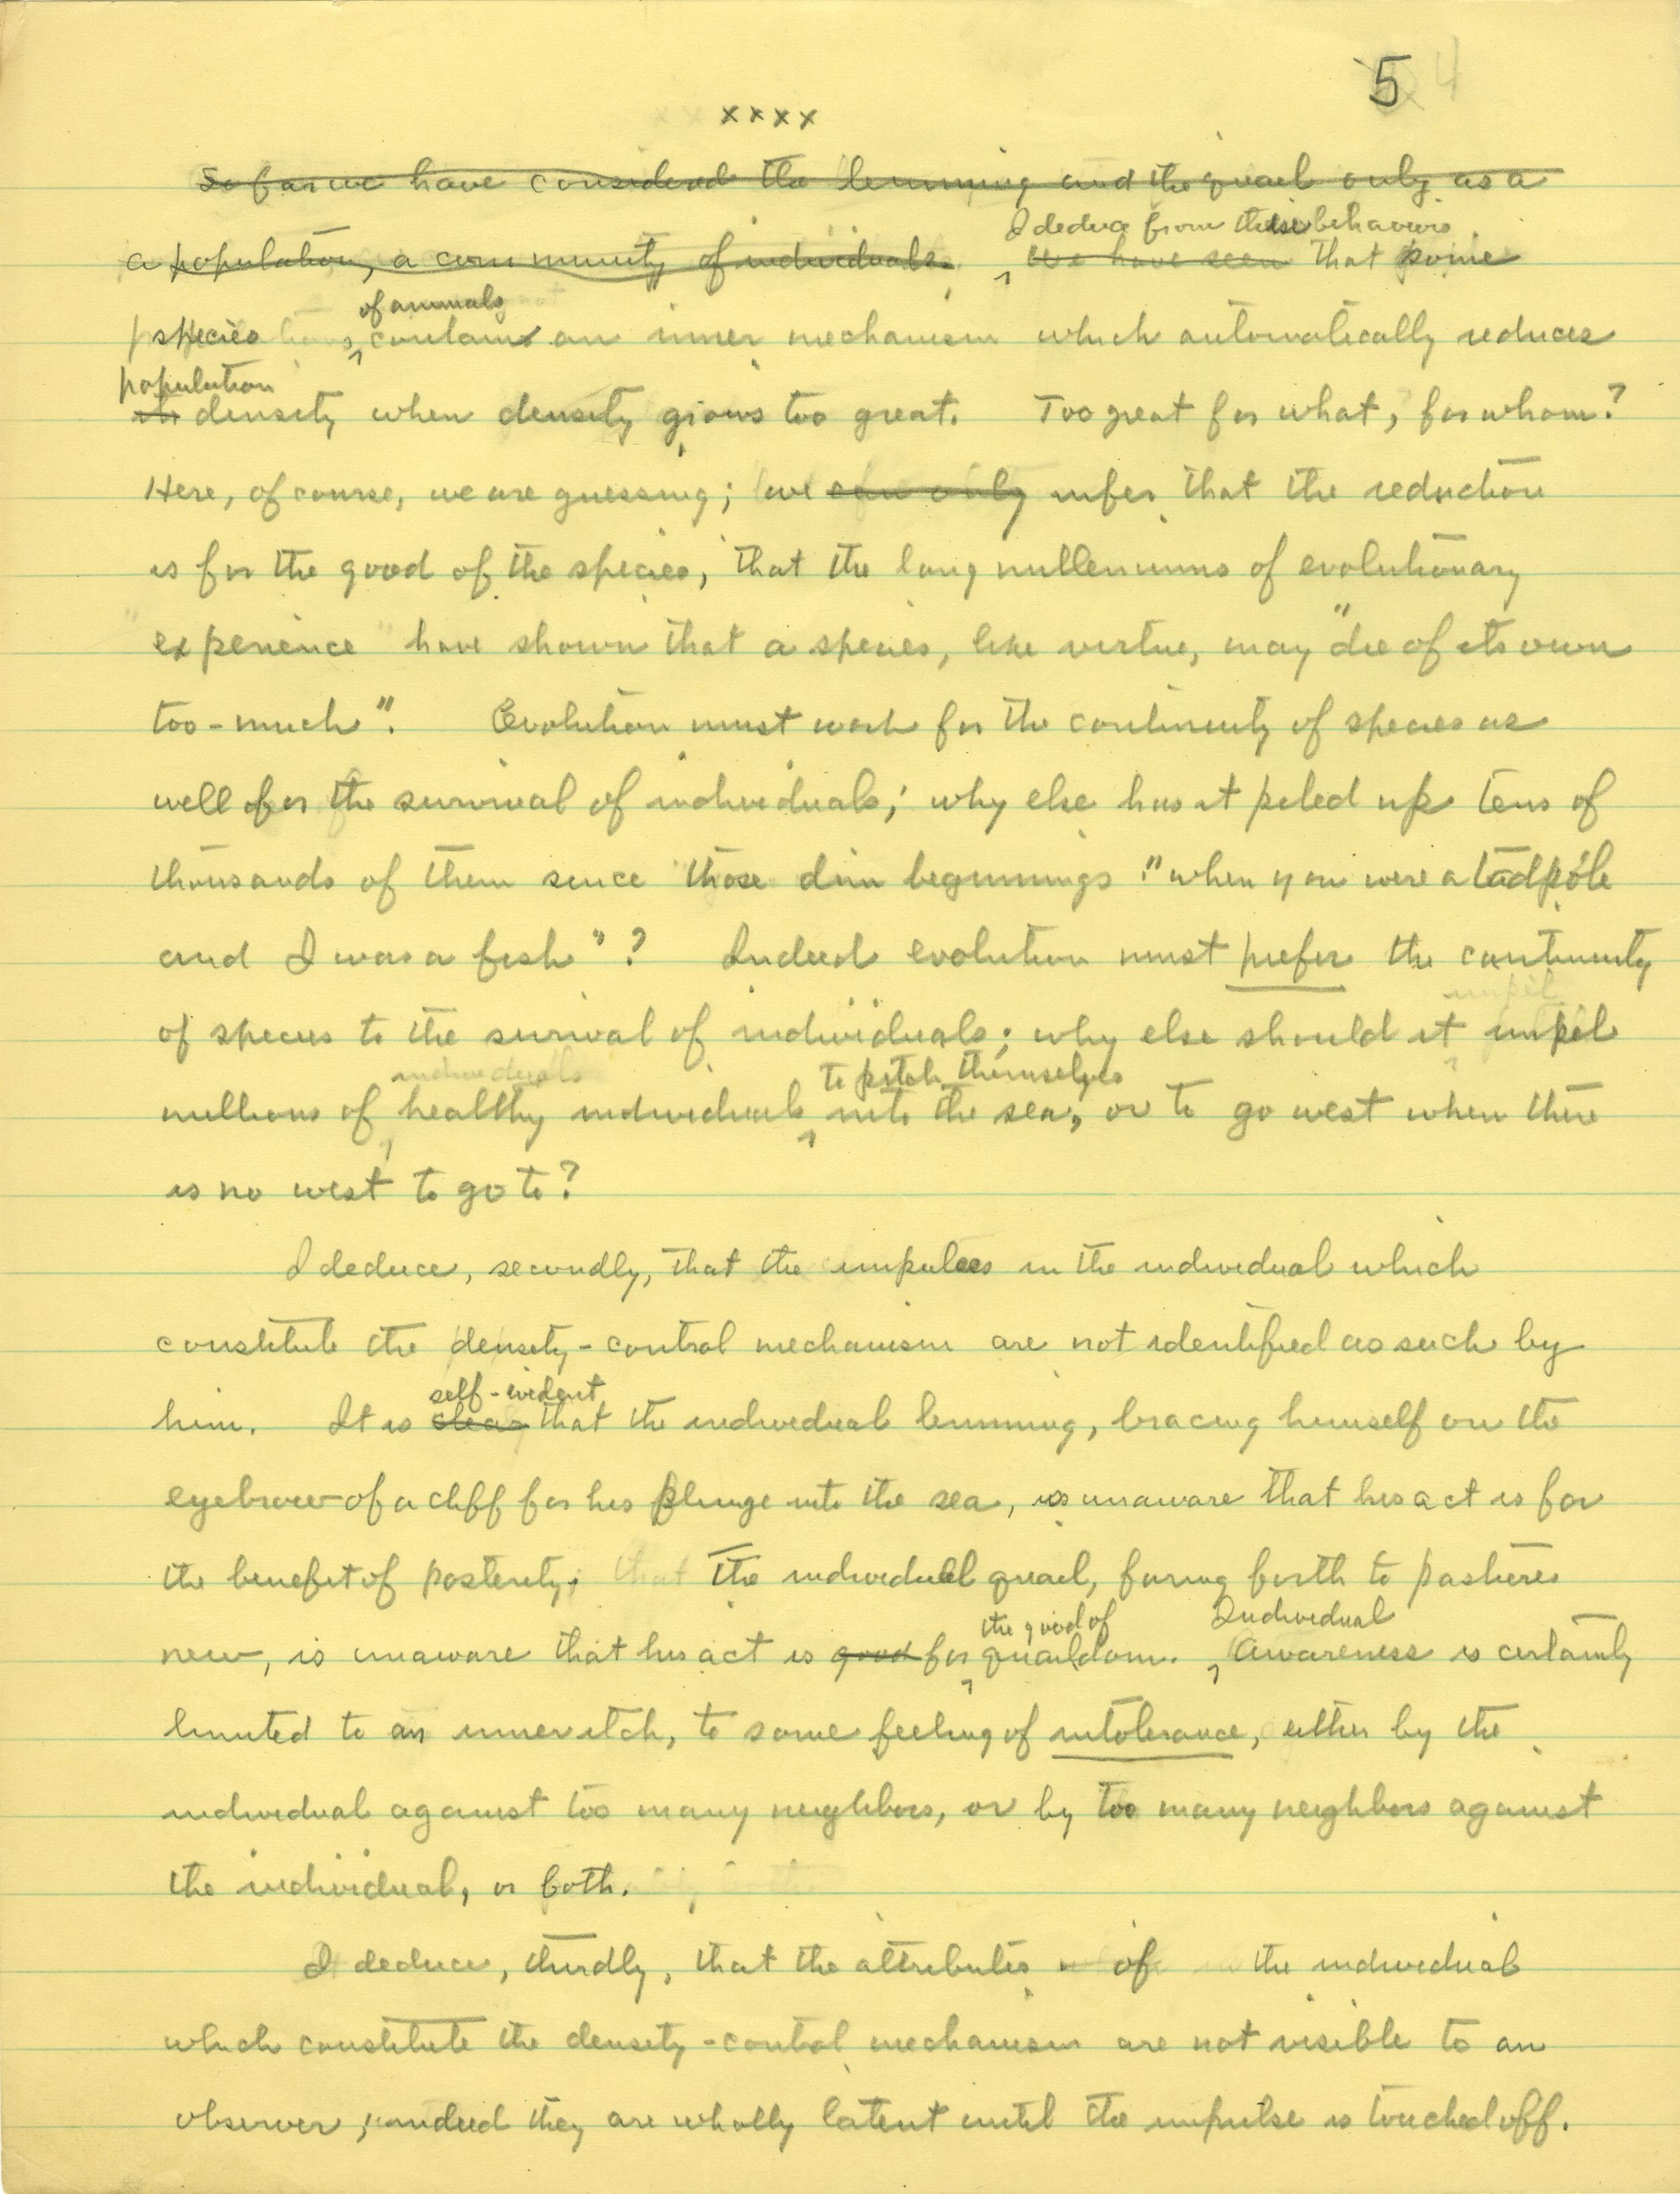 5 4
x x x x
So far we have considered the lemming and the quail only as a
I deduce from these behaviors
a population, a community of individuals. We have seen that some
of animals
species contain an inner mechanism which automatically reduces
population
its density when density grows too great. Too great for what, for whom?
Here, of course, we are guessing; we can only infer that the reduction
is for the good of the species, that the long milleniums of evolutionary
"experience" have shown that a species, like virtue, may "die of its own
too-much". Evolution must work for the continuity of species as
well for the survival of individuals; why else has it piled up tens of
thousands of them since those dim beginnings "when you were a tadpole
and I was a fish"? Indeed evolution must prefer the continuity
of species to the survival of individuals; why else should it impel
individuals to pitch themselves
millions of healthy individuals into the sea, or to go west when there
is no west to go to?
I deduce, secondly, that the impulses in the individual which
constitute the density-control mechanism are not identified as such by
self-evident
him. It is clear that the individual lemming, bracing himself on the
eyebrow of a cliff for his plunge into the sea, is unaware that his act is for
the benefit of posterity; that The individual quail, faring forth to pastures
the good of Individual
new, is unaware that his act is good for quaildom. Awareness is certainly
limited to an inner itch, to some feeling of intolerance, either by the
individual against too many neighbors, or by too many neighbors against
the individual, or both.
I deduce, thirdly, that the attributes of the individual
which constitute the density-control mechanism are not visible to an
observer, indeed they are wholly latent until the impulse is touched off.